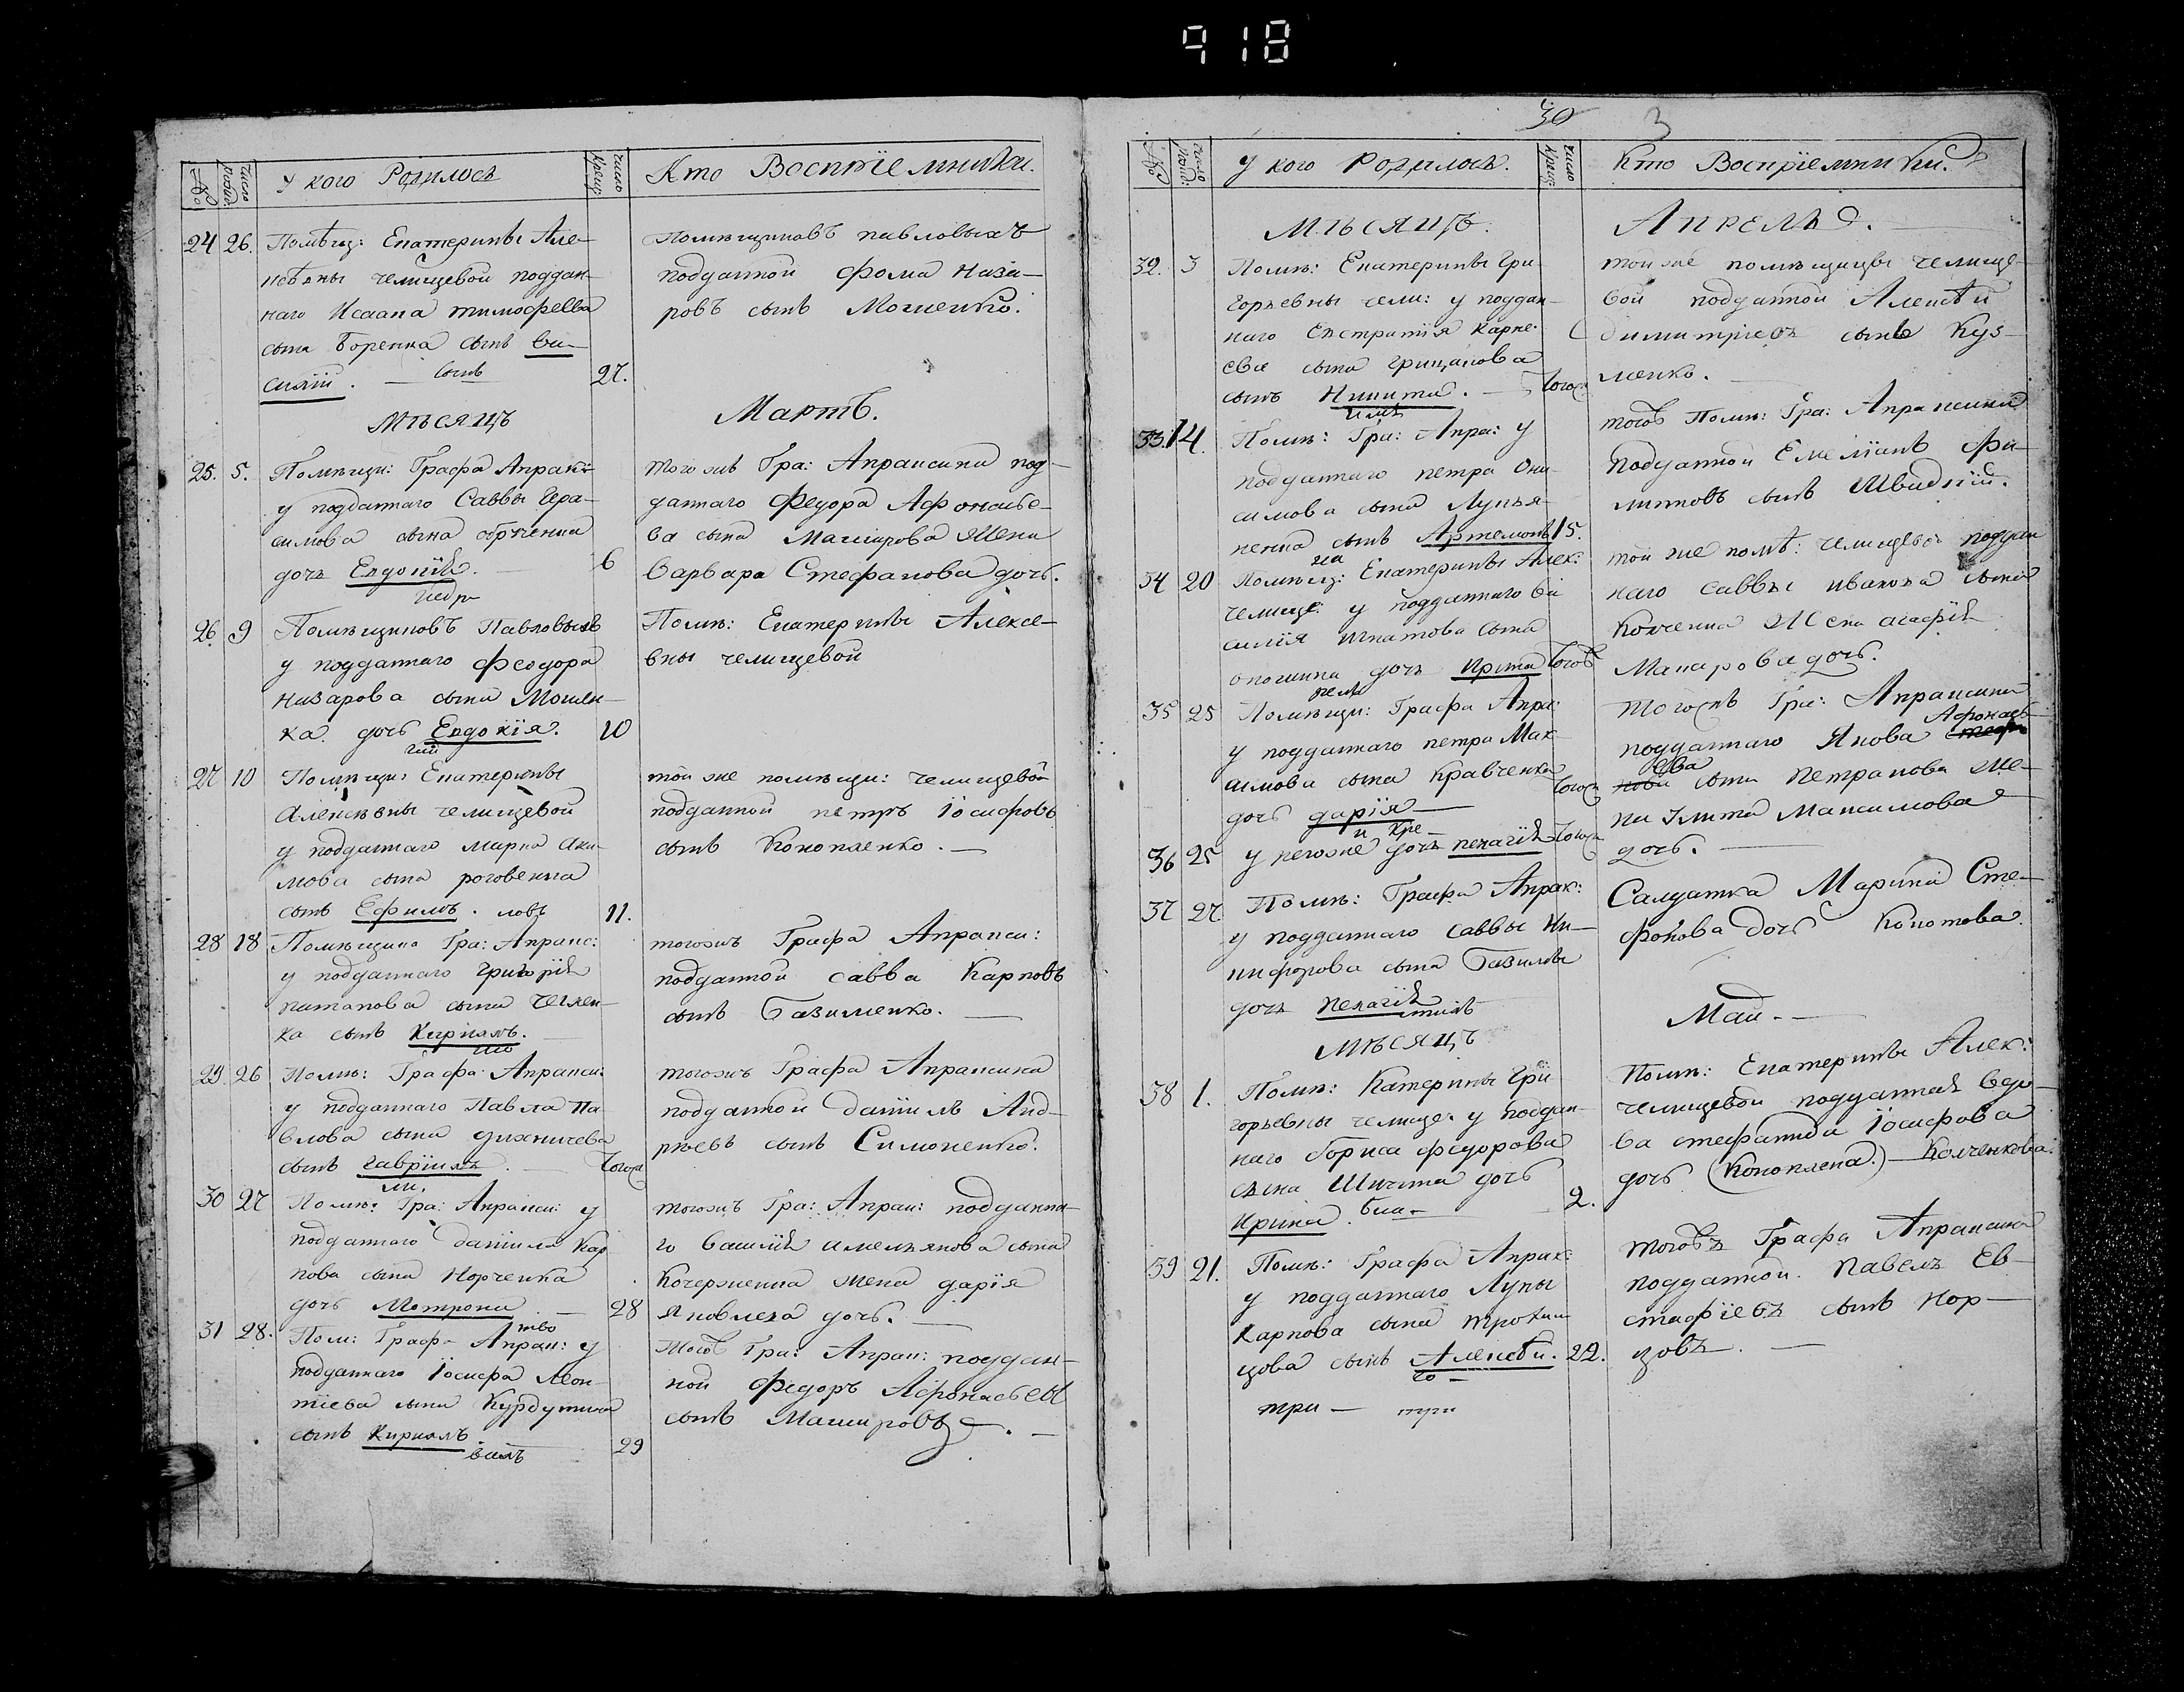 918
№ число Рожд: У кого Родилось число Крещ: Кто Воспрїемники.
24 26. Помѣщ: Екатерины Але-
ксѣвны челищевой поддан-
наго Исаака тимофеева
сына Боренка сынъ Ва-
силїй. 27.
сынъ
Помѣщиковъ павловыхъ
подданной фома Наза-
ровъ сынъ Мошенко.
Мѣсяцъ Мартъ.
25. 5. Помѣщи: Графа Апракс
у подданнаго Саввы Гера-
симова сына
дочь Евдокїя. 6
тогожъ Гра: Апраксина под-
даннаго Федора Афонасье-
ва сына Маширова Жена
Варвара Стефанова дочь.
26. 9 Помѣщиковъ Павловыхъ
у подданнаго феодора
назарова сына Мошен-
ка дочь Евдокїя. 10
Помѣ: Екатерины Алексе-
вны челищевой
27 10 Помѣщи: Екатерины
Алексѣвны челищевой
у подданнаго мирна Аки-
мова сына роговенка
сынъ Ефимъ. 11.
той же помѣщи: челищевой
подданной петръ Іосифовъ
сынъ Конопленко.
28 18 Помѣщика Гра: Апракс:
у подданнаго григорїя
патапова сына
ка сынъ Кирилъ.
тогожъ Графа Апракси:
подданной савва Карповъ
сынъ Базименко.
29. 26 Помѣ: Графа Апракси:
у подданнаго Павла Па
влова сына
сынъ Гаврїилъ. Тогож
тогожъ Графа Апраксина
подданной данїилъ Анд-
рѣевъ сынъ Симоненко.
30 27 Помѣ: Гра: Апракси: у
подданнаго данїила Кар
пова сына Норченка
дочь Мотрона. 28
тогожъ Гра: Апрак: поданна-
го Василїя Амельянова сына
Кочерженка жена дарїя
Яковлева дочь.
31 28. Пом: Графа Апрак: у
подданнаго Іосифа Леон-
тїева сына Курдупина
сынъ Кирилъ. 29
Тогожъ Гра: Апрак: поддан-
ной Федоръ Афонасьевъ
сынъ Машировъ.
30 3
№ число Рожд: У кого Родилось. число Крещ: Кто Воспрїемники.
Мѣсяцъ. Апрель.
32. 3 Помѣ: Екатерины Гри-
горьевны чели: у поддан-
наго Евстратїя Карпе-
ева сына грицанова
сынъ Никита. Тогож
той же помѣщицы челище-
вой подданной Алексѣй
димитрїевъ сынъ Куз-
менко.
33. 14. Помѣ: Гра: Апра: у
подданнаго петра Они-
симова сына Лупья-
ненка сынъ Артемонъ 15.
тогож Помѣ: Гра: Апраксина
Подданной Емелїянъ Фи-
липповъ сынъ Швидкїй.
34 20 Помѣщ: Екатерины Алек:
челище: у подданнаго ва
силїя Игнатова сына
опошнина дочь Ирина Тогож
той же помѣ: челищевой поддан
наго саввы иванова сына
Колченка Жена агафїя
Макарова дочь.
35 25 Помѣщи: Графа Апра:
у подданнаго петра Мак-
симова сына Кравченка
дочь дарїя Тогож
Тогожъ Гра: Апраксина
подданнаго Якова Афонась
ева сына Петракова Же-
на Улита Максимова
дочь.
36 25 У негоже дочь пелагїя Тогож
37 27. Помѣ: Графа Апрак:
у подданнаго саввы Ни-
кифорова сына Базилев
дочь Пелагїя
Салдатка Марина Сте-
фанова дочь Колотова.
Мѣсяцъ Май.
38 1. Помѣ: Катерины Гри
горьевны челище: у поддан-
наго бориса федорова
сына Шичина дочь
Ирина. 2.
Помѣ: Екатерины Алек:
челищевой подданная вдо-
ва стефанида Іосифова
дочь (Коноплена.) Колченкова:
39 21. Помѣ: Графа Апрак:
у подданнаго Лупы
Карпова сына трохим
цова сынъ Алексѣй. 22.
тогожъ Графа Апраксина
подданной. Павелъ Ев-
стафїевъ сынъ Нор-
цовъ.
три — три